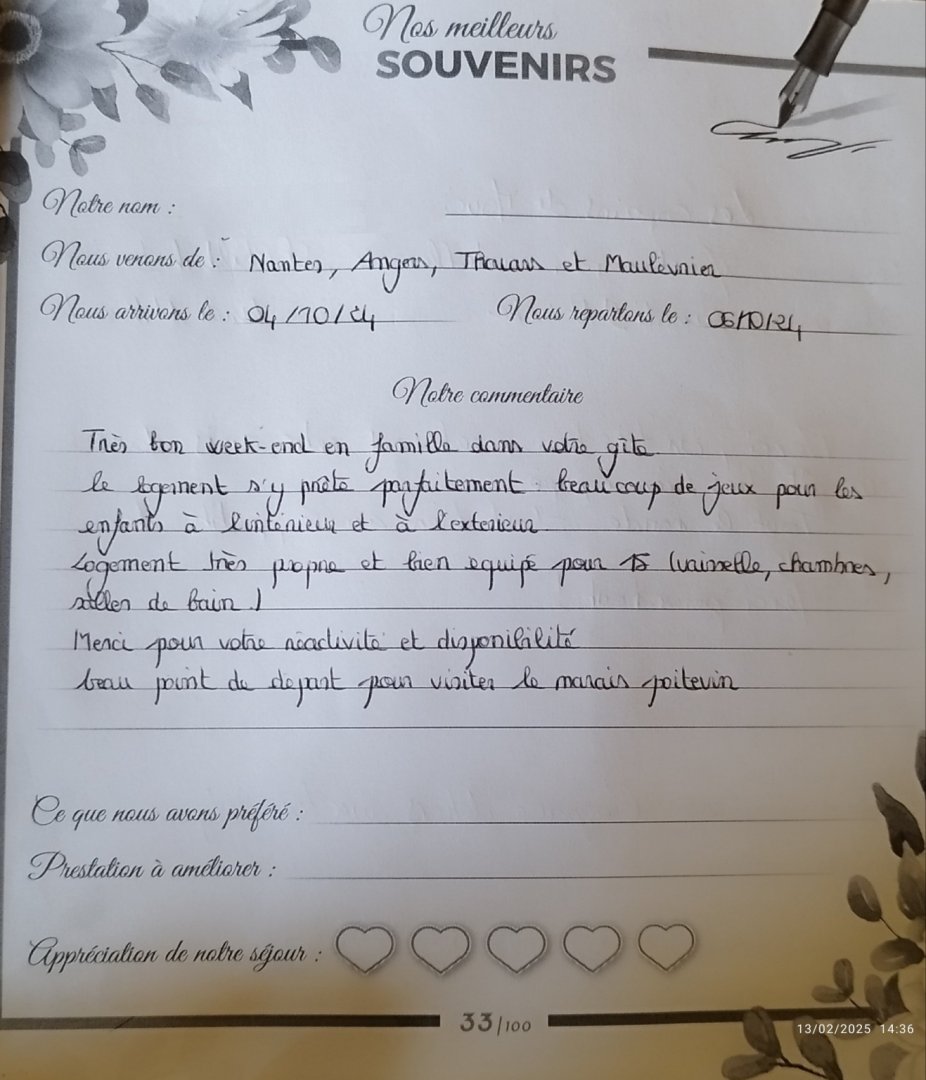 Nos meilleurs
SOUVENIRS
Notre nom :
Nous venons de : Nantes, Angers, Thouars et Maulévrier
Nous arrivons le : 04/10/24 Nous repartons le : 06/10/24
Notre commentaire
Très bon week-end en famille dans votre gîte
le logement s'y prête parfaitement : beaucoup de jeux pour les
enfants à l'intérieur et à l'exterieur
Logement très propre et bien equipé pour 15 (vaisselle, chambres,
salles de bain)
Merci pour votre réactivité et disponibilité
beau point de depart pour visiter le marais poitevin
Ce que nous avons préféré :
Prestation à améliorer :
Appréciation de notre séjour :
33/100
13/02/2025 14:36